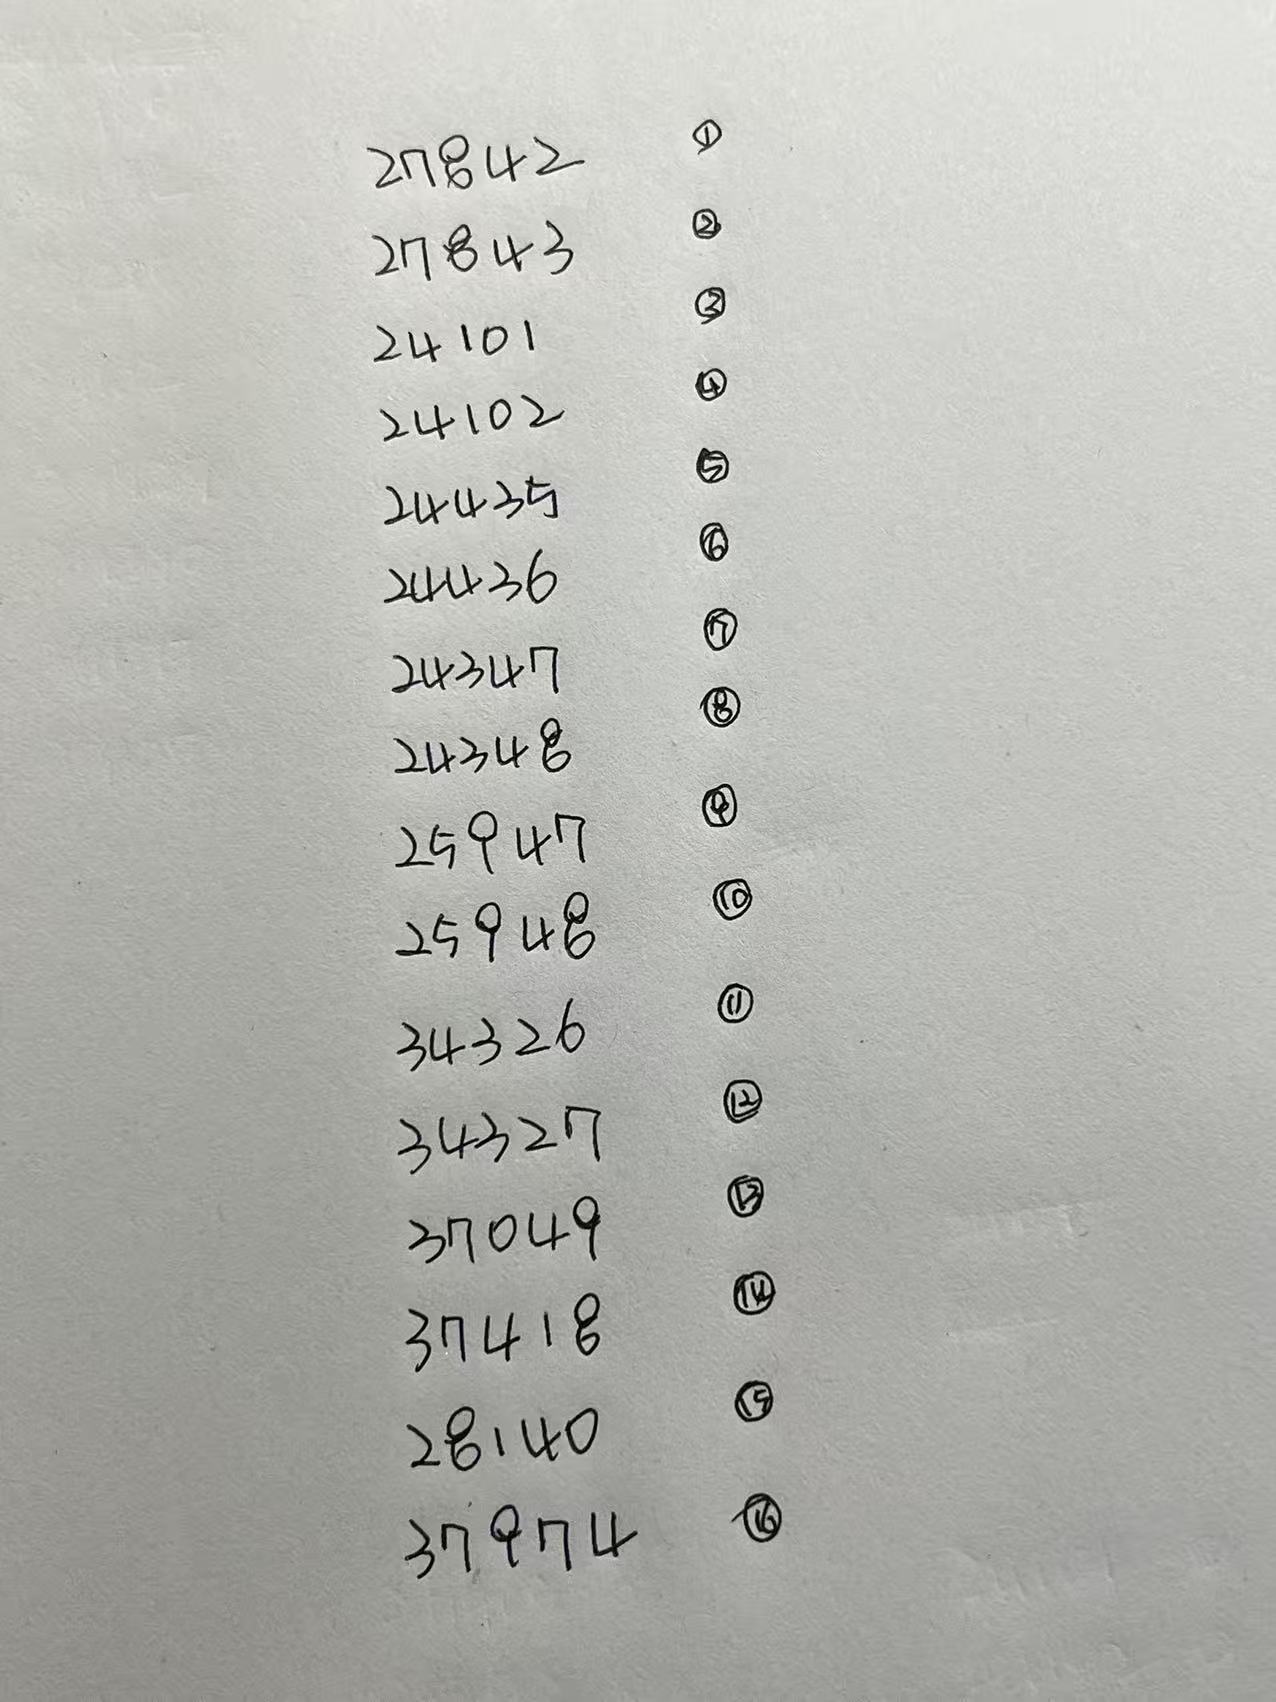 27842 ①
27843 ②
24101 ③
24102 ④
24435 ⑤
24436 ⑥
24347 ⑦
24348 ⑧
25947 ⑨
25948 ⑩
34326 ⑪
34327 ⑫
37049 ⑬
37418 ⑭
28140 ⑮
37974 ⑯